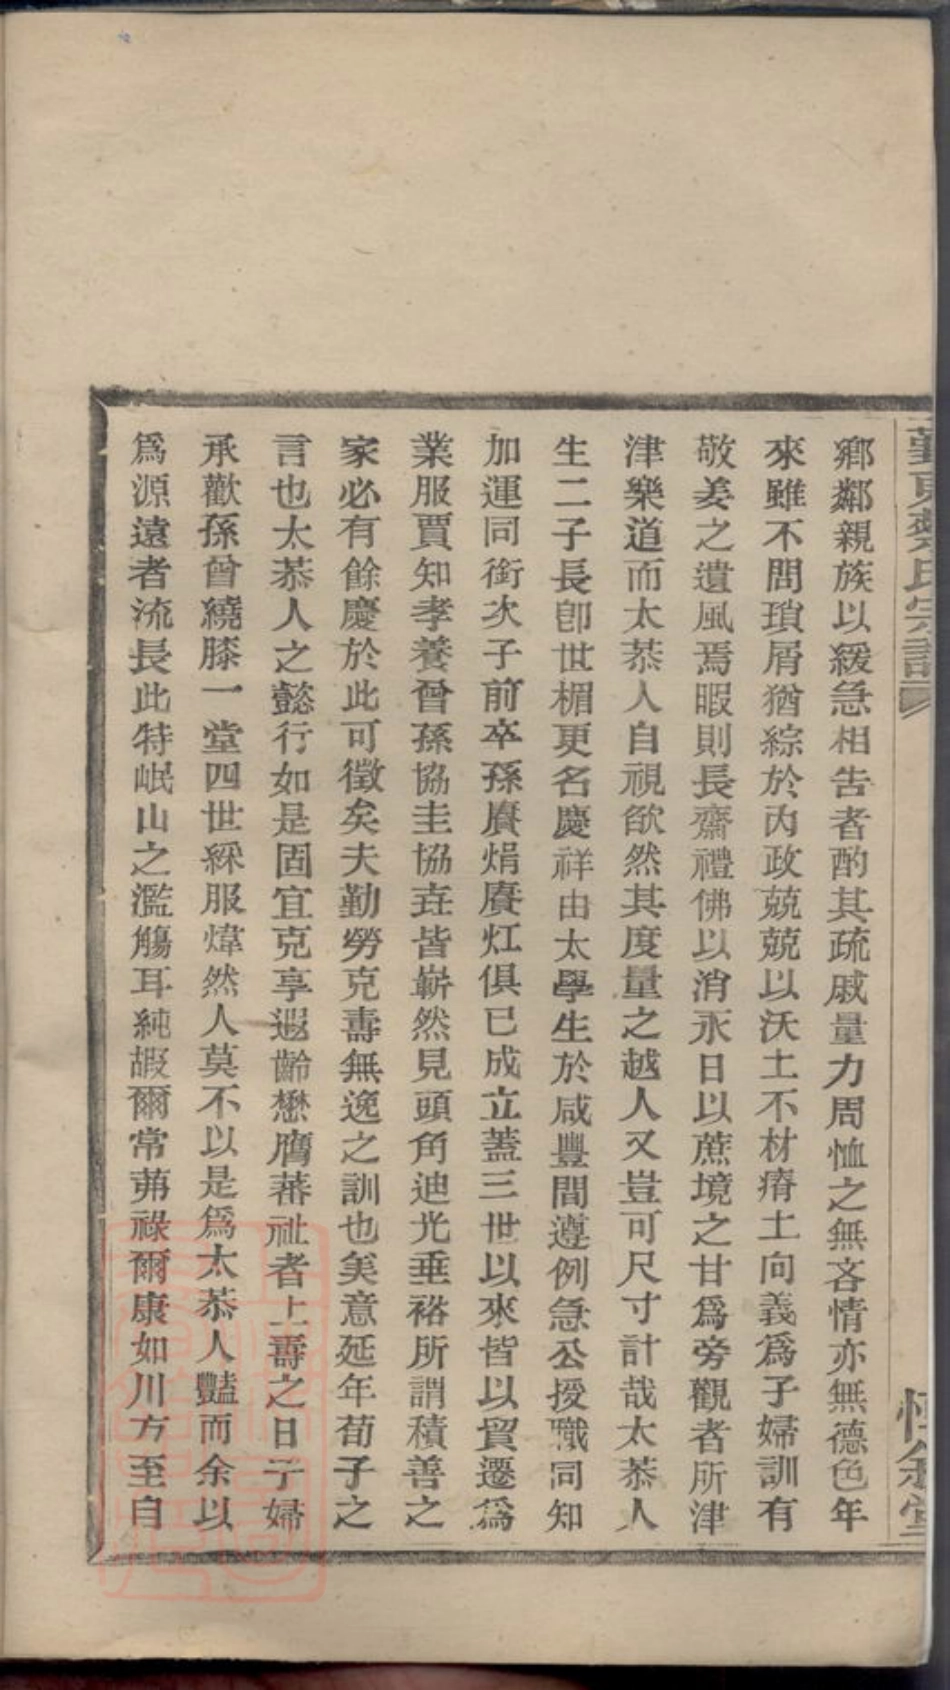 鄉鄰親族以緩急相告者酌其疏戚量力周恤之無吝情亦無德色年
來雖不問瑣屑猶綜於內政兢兢以沃土不材瘠土向義爲子婦訓有
敬姜之遺風焉暇則長齋禮佛以消永日以蔗境之甘爲旁觀者所津
津樂道而太恭人自視欿然其度量之越人又豈可尺寸計哉太恭人
生二子長卽世楣更名慶祥由太學生於咸豐間遵例急公授職同知
加運同銜次子前卒孫賡焆賡灴俱已成立蓋三世以來皆以貿遷爲
業服賈知孝養曾孫協圭協垚皆嶄然見頭角迪光垂裕所謂積善之
家必有餘慶於此可徵矣夫勤勞克壽無逸之訓也美意延年荀子之
言也太恭人之懿行如是固宜克享遐齡懋膺蕃祉者上壽之日子婦
承歡孫曾繞膝一堂四世綵服煒然人莫不以是爲太恭人豔而余以
爲源遠者流長此特岷山之濫觴耳純嘏爾常茀祿爾康如川方至自
東 氏宗譜